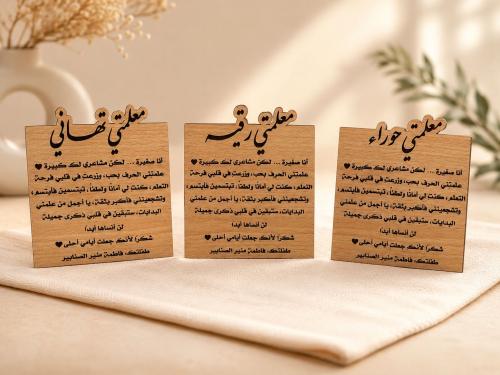 معلمتي تهاني
أنا صغيرة ... لكن مشاعري لك كبيرة ♥
علمتني الحرف بحب، وزرعت في قلبي فرحة
التعلم، كنت لي أمانًا ولطفًا، تبتسمين فأبتسم،
وتشجعيني فأكبر بثقة، يا أجمل من علمني
البدايات، ستبقين في قلبي ذكرى جميلة
لن أنساها أبدا
شكرا لأنك جعلت أيامي أحلى ♥
طفلتك، فاطمة منير الصنابير
معلمتي رقيه
أنا صغيرة ... لكن مشاعري لك كبيرة ♥
علمتني الحرف بحب، وزرعت في قلبي فرحة
التعلم، كنت لي أمانًا ولطفًا، تبتسمين فأبتسم،
وتشجعيني فأكبر بثقة، يا أجمل من علمني
البدايات، ستبقين في قلبي ذكرى جميلة
لن أنساها أبدا
شكرا لأنك جعلت أيامي أحلى ♥
طفلتك، فاطمة منير الصنابير
معلمتي حوراء
أنا صغيرة ... لكن مشاعري لك كبيرة ♥
علمتني الحرف بحب، وزرعت في قلبي فرحة
التعلم، كنت لي أمانًا ولطفًا، تبتسمين فأبتسم،
وتشجعيني فأكبر بثقة، يا أجمل من علمني
البدايات، ستبقين في قلبي ذكرى جميلة
لن أنساها أبدا
شكرا لأنك جعلت أيامي أحلى ♥
طفلتك، فاطمة منير الصنابير